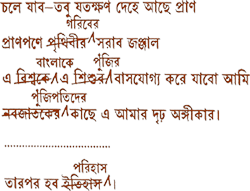 চলে যাব–তবু যতক্ষণ দেহে আছে প্রাণ
গরিবের
প্রাণপণে পৃথিবীর সরাব জঞ্জাল
বাংলাকে পুঁজির
এ বিশ্বকে এ শিশুর বাসযোগ্য করে যাবো আমি
পুঁজিপতিদের
নবজাতকের কাছে এ আমার দৃঢ় অঙ্গীকার।
..............................
পরিহাস
তারপর হব ইতিহাস।